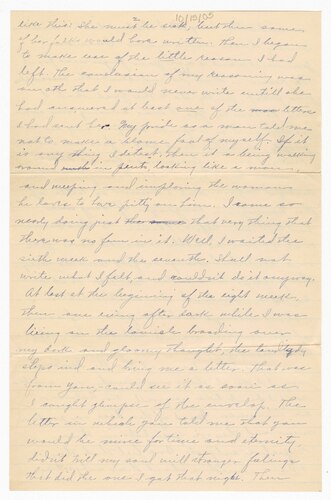 2
10/15/05
like this: She must be sick, but then some
of her folks would have written. Then I began
to make use of the little reason I had
left. The conclusion of my reasoning was
an oath that I would never write untill she
had answered at least one of the letters
I had sent her. My pride as a man told me
not to make a blame fool of myself. If it
is any thing I detest, then it is being walking
around in pants, looking like a man,
and weeping and imploring the woman
he loves to have pitty on him. I came so
nearly doing just that very thing that
there was no fun in it. Well, I waited the
sixth week and the seventh. Shall not
write what I felt, and couldn't do it anyway.
At last at the beginning of the eight week,
then one evning after dark while I was
lieing on the bed brooding over
my dark and gloomy thoughts, the landlady
steps in and bring me a letter. That was
from you, could see it as soon as
I caught glimpse of the envelop. The
letter in which you told me that you
would be mine for time and eternity
didn't fill my soul with stronger feelings
that did the one I got that night. Then